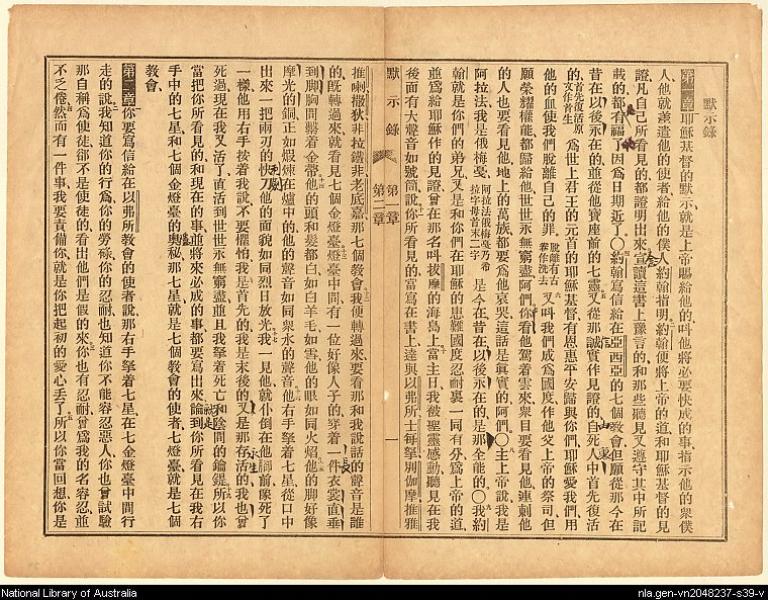 默示錄
第一章耶穌基督的默示就是上帝賜給他的叫他將必要快成的事指示他的衆僕
人他就差遣他的使者給他的僕人約翰指明約翰便將上帝的道和耶穌基督的見
證凡自己所看見的都證明出來宣讀這書上豫言的和那些聽見又遵守其中所記
載的都有福了因爲日期近了〇約翰寫信給在亞西亞的七個教會但願從那今在
昔在以後永在的並從他寶座前的七靈又從那誠實作見證的自死人中首先復活
的首先復活原文作首生爲世上君王的元首的耶穌基督有恩惠平安歸與你們耶穌愛我們用
他的血使我們脫離自己的罪脫離有古卷作洗去又叫我們成爲國度作他父上帝的祭司但
願榮耀權能都歸給他世世無窮阿們你看他駕着雲來衆目要看見他連刺他
的人也要看見他地上的萬族都要爲他哀哭這話是眞實的阿們〇主上帝說我是
阿拉法我是俄梅戞阿拉法俄梅戞乃希拉字母首末二字是今在昔在以後永在的是那全能的〇我約
翰就是你們的弟兄又是和你們在耶穌的患難國度忍耐裏一同有分爲上帝的道
並爲給耶穌作的見證曾在那名叫拔摩的海島上當主日我被聖靈感動聽見在我
後面有大聲音如號筒說你所看見的當寫在書上達與以弗所士每拿別伽摩推雅
默示錄 第一章 第二章 一
推喇撒狄非拉鐵非老底嘉那七個教會我便轉過來要看那和我說話的聲音是誰
的旣轉過來就看見七個金燈臺燈臺中間有一位好像人子的穿着一件衣裳直垂
到脚胸間繫着金帶他的頭和髮都白如白羊毛如雪他的眼如同火焰他的脚好像
光的銅正如煅煉在爐中的他的聲音如同衆水的聲音他右手拏着七星從口中
出來一把兩刃的快刀他的面貌如同烈日放光我一見他就仆倒在他脚前像死了
一樣他用右手按着我說不要懼怕我是首先的我是末後的又是那存活的我也曾
死過現在我又活了直活到世世無窮盡並且我拏着死亡和陰間的鑰匙所以你
當把你所看見的和現在的事並將來必成的事都要寫出來論到你所看見在我右
手中的七星和七個金燈臺的奧秘那七星就是七個教會的使者七燈臺就是七個
教會
第二章你要寫信給在以弗所教會的使者說那右手拏着七星在七金燈臺中間行
走的說我知道你的行爲你的勞碌你的忍耐也知道你不能容忍惡人你也曾試驗
那自稱爲使徒卻不是使徒的看出他們是假的來你也有忍耐曾爲我的名容忍並
不乏倦然而有一件事我要責備你就是你把起初的愛心丟了所以你當回想你是
National Library of Australia
nla.gen-vn2048237-s39-v